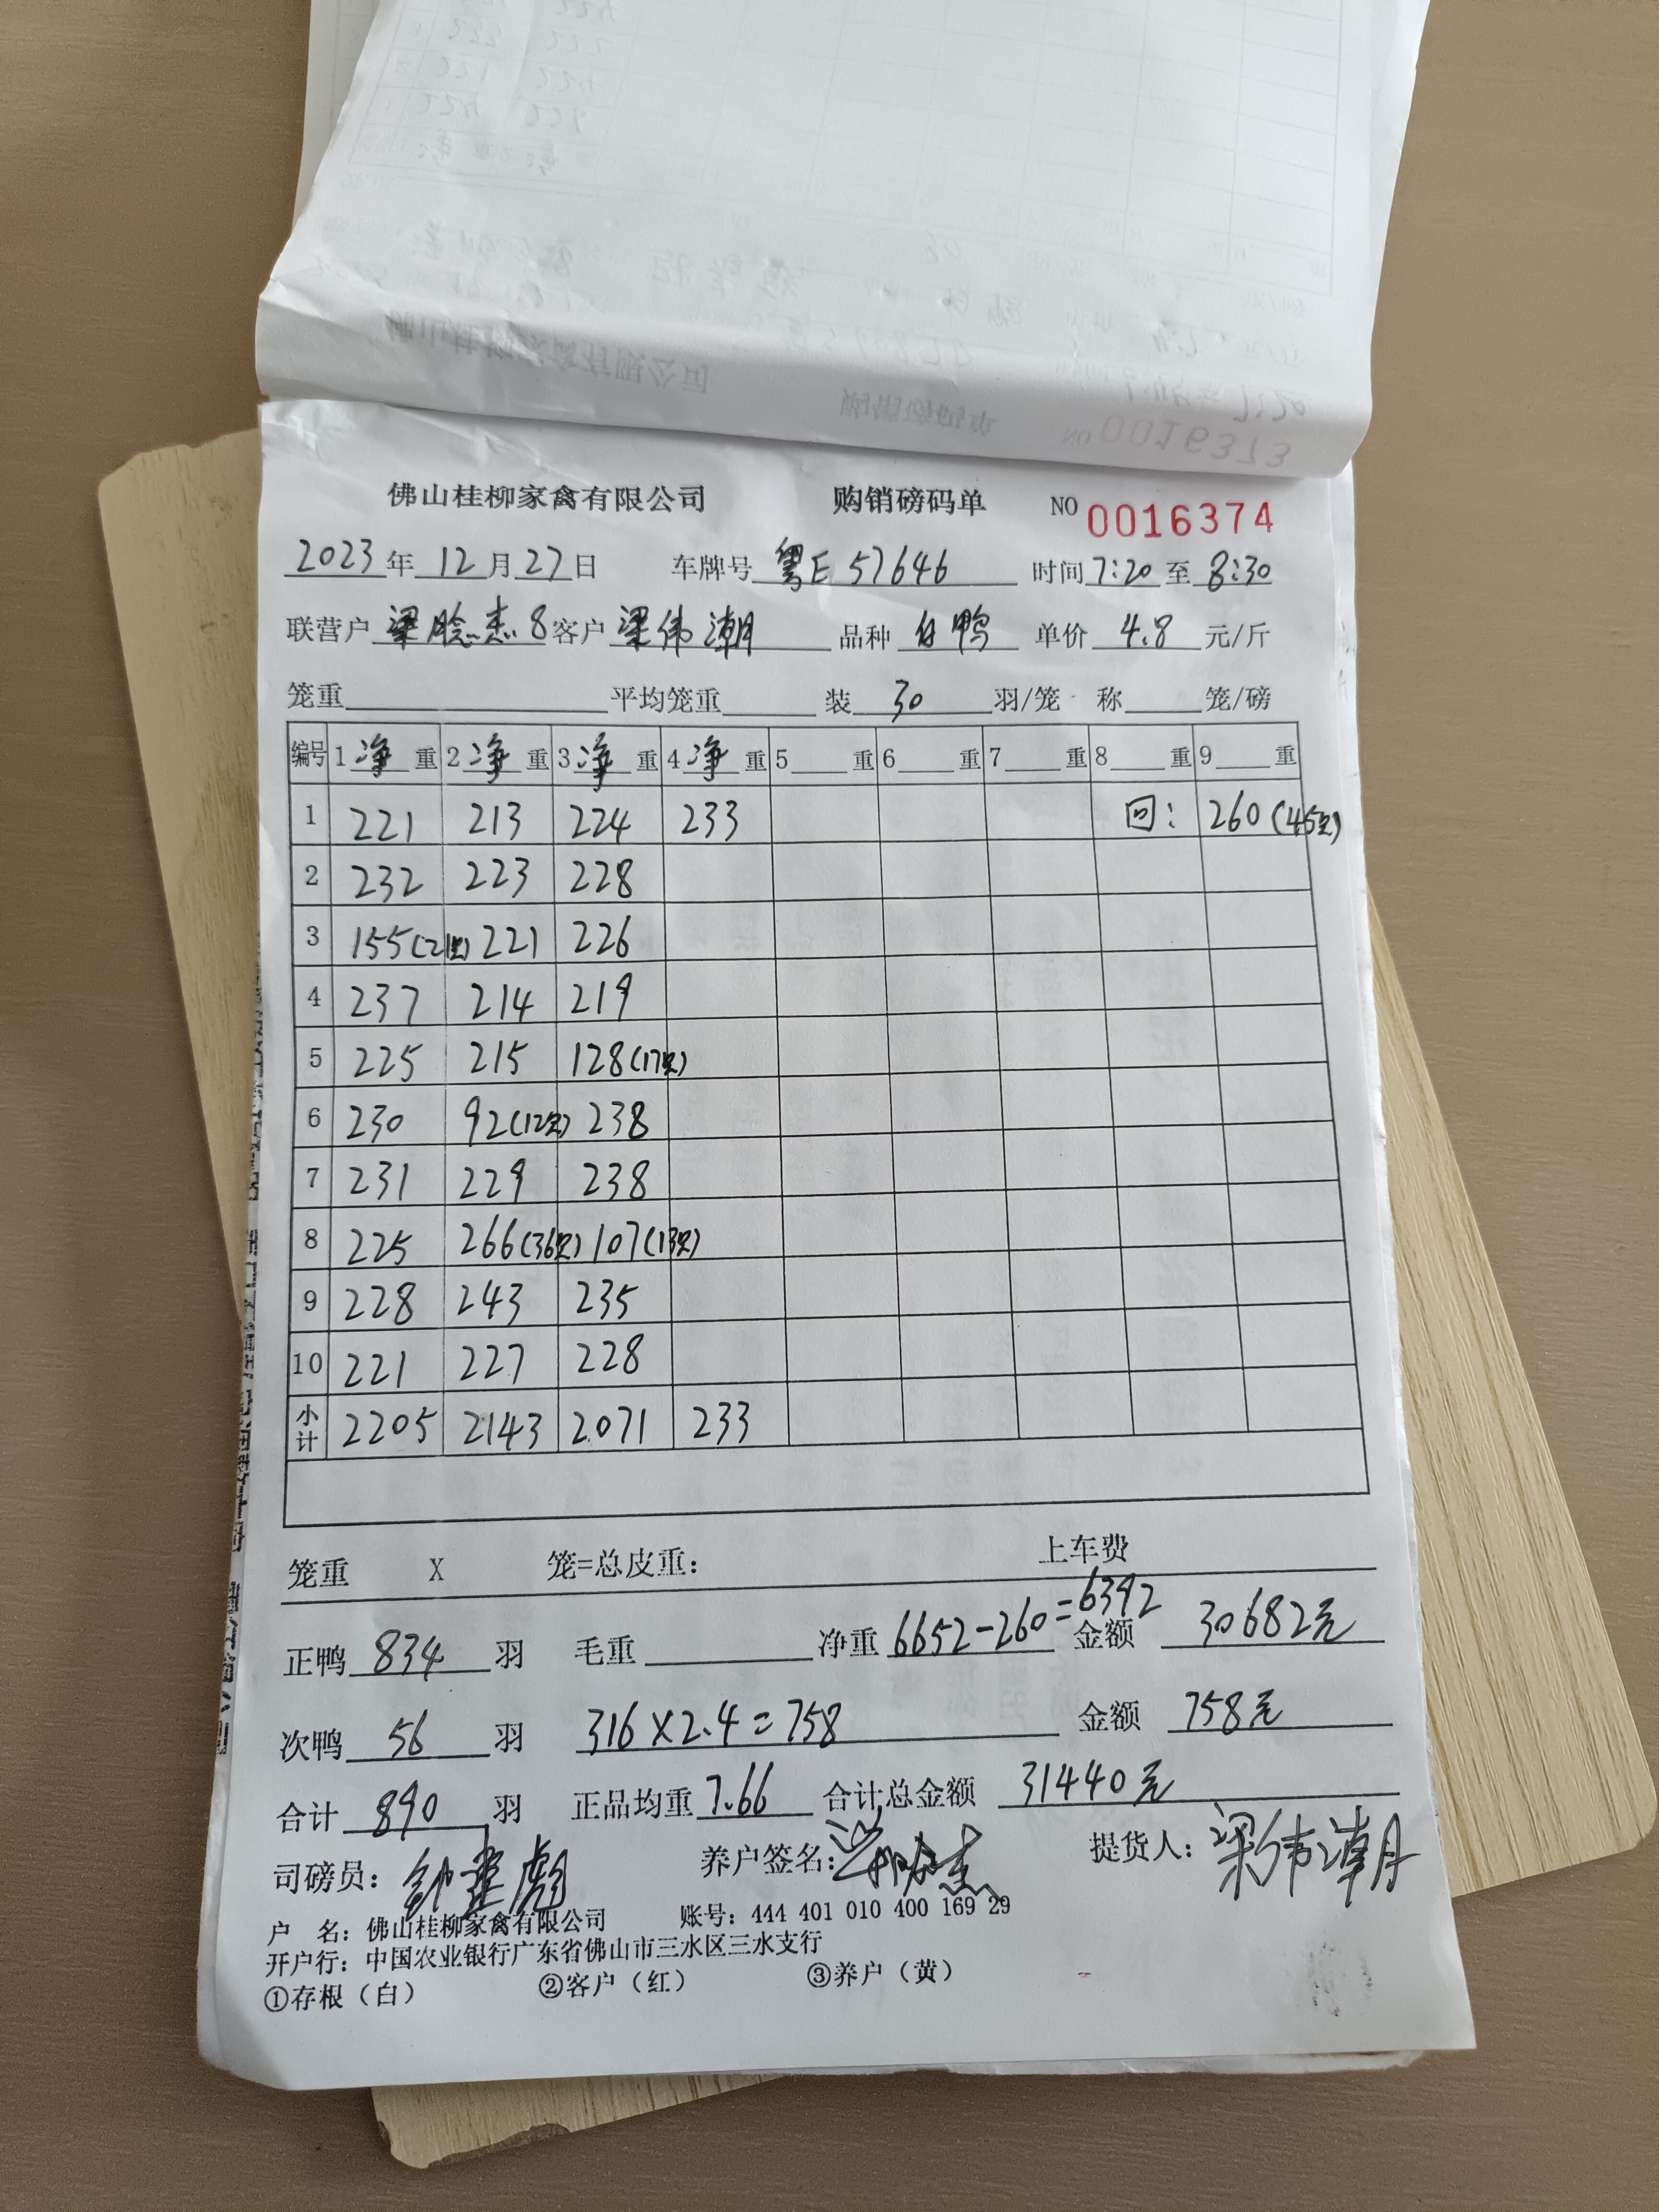 佛山桂柳家禽有限公司 购销磅码单 NO 0016374
2023年12月27日 车牌号 粤E 57646 时间 7:20 至 8:30
联营户 梁 杰8 客户 梁伟潮 品种 白鸭 单价 4.8 元/斤
笼重 平均笼重 装 30 羽/笼 称 笼/磅
编号 1 净 重 2 净 重 3 净 重 4 净 重 5 重 6 重 7 重 8 重 9 重
1 221 213 224 233 回: 260(45只)
2 232 223 228
3 155(21只) 221 226
4 237 214 219
5 225 215 128(17只)
6 230 92(12只) 238
7 231 229 238
8 225 266(36只) 107(13只)
9 228 243 235
10 221 227 228
小计 2205 2143 2071 233
笼重 X 笼=总皮重: 上车费
正鸭 834 羽 毛重 净重 6652-260=6392 金额 30682元
次鸭 56 羽 316×2.4=758 金额 758元
合计 890 羽 正品均重 7.66 合计总金额 31440元
司磅员: 养户签名: 提货人: 梁伟潮
户 名: 佛山桂柳家禽有限公司 账号: 444 401 010 400 169 29
开户行: 中国农业银行广东省佛山市三水区三水支行
①存根（白） ②客户（红） ③养户（黄）